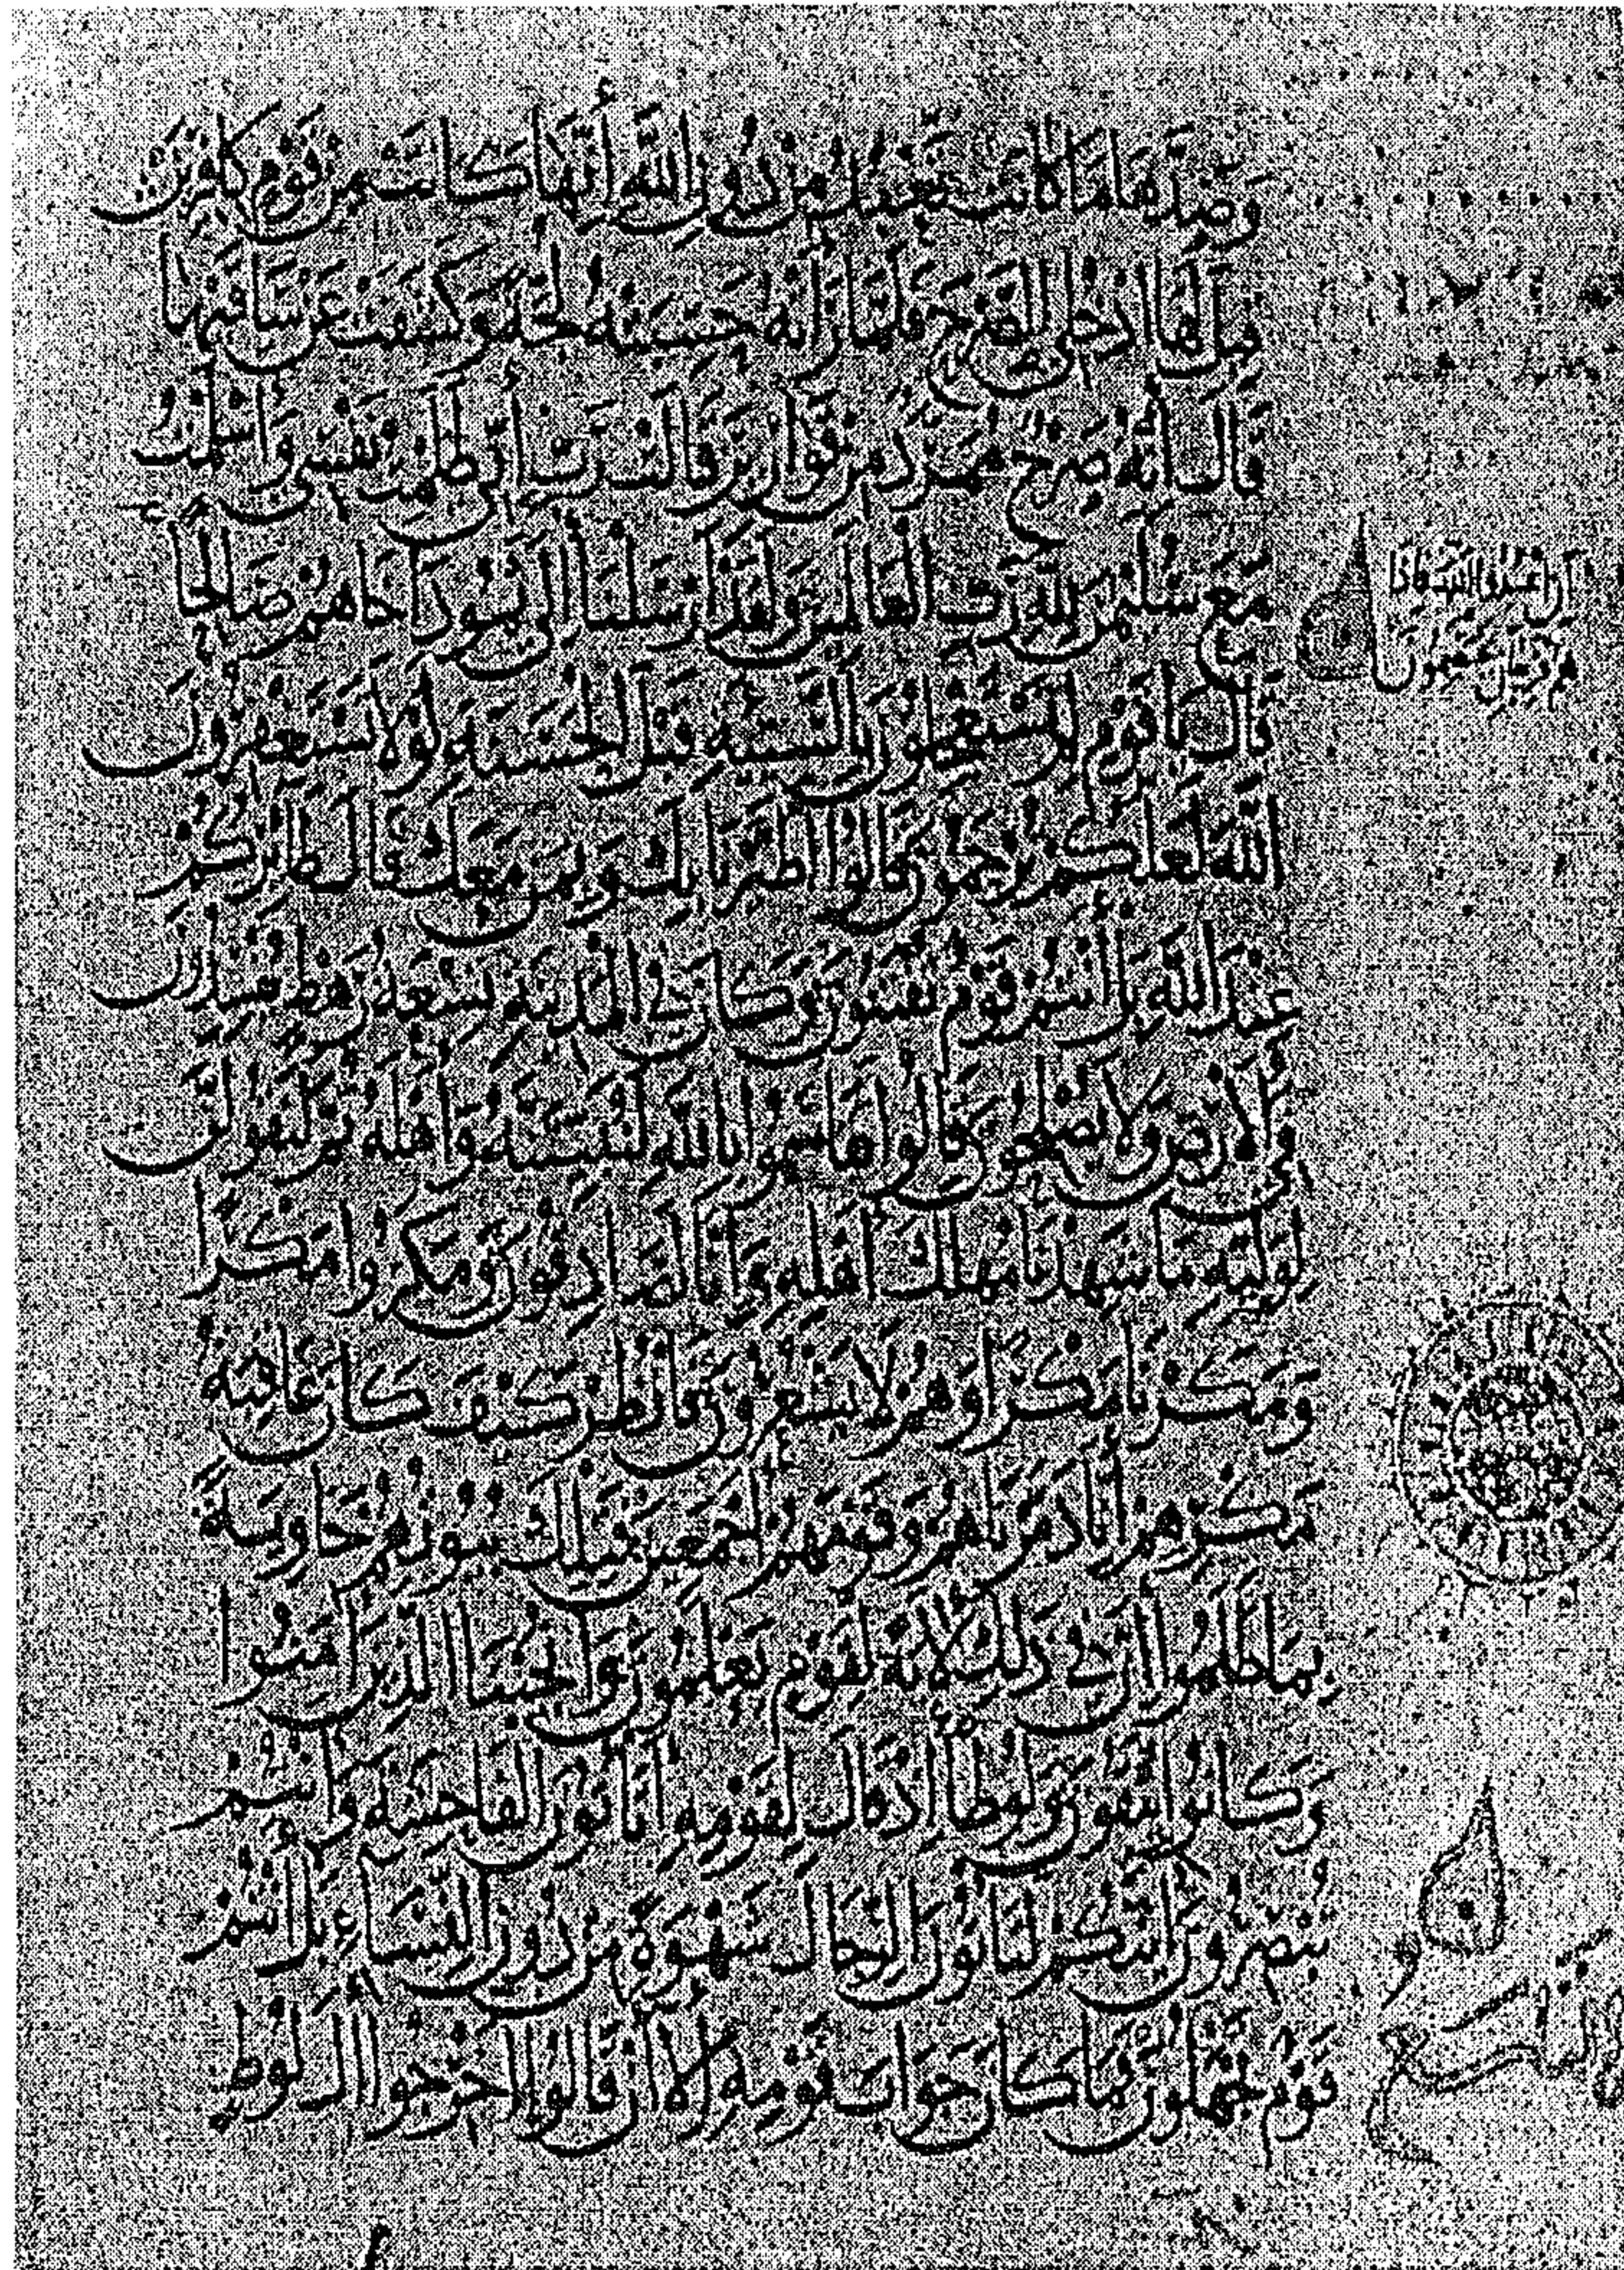 وَصَدَّهَا مَا كَانَت تَّعْبُدُ مِن دُونِ اللَّهِ إِنَّهَا كَانَتْ مِن قَوْمٍ كَافِرِينَ
قِيلَ لَهَا ادْخُلِي الصَّرْحَ فَلَمَّا رَأَتْهُ حَسِبَتْهُ لُجَّةً وَكَشَفَتْ عَن سَاقَيْهَا
قَالَ إِنَّهُ صَرْحٌ مُّمَرَّدٌ مِّن قَوَارِيرَ قَالَتْ رَبِّ إِنِّي ظَلَمْتُ نَفْسِي وَأَسْلَمْتُ
مَعَ سُلَيْمَنَ لِلَّهِ رَبِّ الْعَالَمِينَ وَلَقَدْ أَرْسَلْنَا إِلَى ثَمُودَ أَخَاهُمْ صَالِحًا
أَنِ اعْبُدُوا اللَّهَ فَإِذَا
هُمْ فَرِيقَانِ يَخْتَصِمُونَ
قَالَ يَا قَوْمِ لِمَ تَسْتَعْجِلُونَ بِالسَّيِّئَةِ قَبْلَ الْحَسَنَةِ لَوْلَا تَسْتَغْفِرُونَ
اللَّهَ لَعَلَّكُمْ تُرْحَمُونَ قَالُوا اطَّيَّرْنَا بِكَ وَبِمَن مَّعَكَ قَالَ طَائِرُكُمْ
عِندَ اللَّهِ بَلْ أَنتُمْ قَوْمٌ تُفْتَنُونَ وَكَانَ فِي الْمَدِينَةِ تِسْعَةُ رَهْطٍ يُفْسِدُونَ
فِي الْأَرْضِ وَلَا يُصْلِحُونَ قَالُوا تَقَاسَمُوا بِاللَّهِ لَنُبَيِّتَنَّهُ وَأَهْلَهُ ثُمَّ لَنَقُولَنَّ
لِوَلِيِّهِ مَا شَهِدْنَا مَهْلِكَ أَهْلِهِ وَإِنَّا لَصَادِقُونَ وَمَكَرُوا مَكْرًا
وَمَكَرْنَا مَكْرًا وَهُمْ لَا يَشْعُرُونَ فَانظُرْ كَيْفَ كَانَ عَاقِبَةُ
مَكْرِهِمْ أَنَّا دَمَّرْنَاهُمْ وَقَوْمَهُمْ أَجْمَعِينَ فَتِلْكَ بُيُوتُهُمْ خَاوِيَةً
بِمَا ظَلَمُوا إِنَّ فِي ذَلِكَ لَآيَةً لِّقَوْمٍ يَعْلَمُونَ وَأَنجَيْنَا الَّذِينَ آمَنُوا
وَكَانُوا يَتَّقُونَ وَلُوطًا إِذْ قَالَ لِقَوْمِهِ أَتَأْتُونَ الْفَاحِشَةَ وَأَنتُمْ
تُبْصِرُونَ أَئِنَّكُمْ لَتَأْتُونَ الرِّجَالَ شَهْوَةً مِّن دُونِ النِّسَاءِ بَلْ أَنتُمْ
قَوْمٌ تَجْهَلُونَ فَمَا كَانَ جَوَابَ قَوْمِهِ إِلَّا أَن قَالُوا أَخْرِجُوا آلَ لُوطٍ